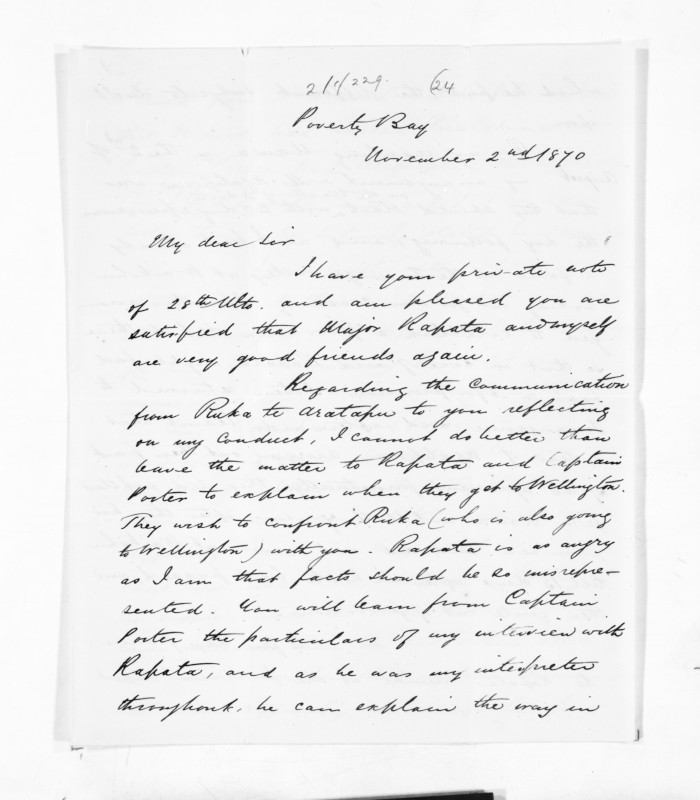 24
Poverty Bay
November 2nd 1870
My dear Sir
I have your private note
of 28th Ulto. and am pleased you are
satisfied that Major Rapata and myself
are very good friends again.
Regarding the communication
from Ruka te Aratapu to you reflecting
on my conduct, I cannot do better than
leave the matter to Rapata and Captain
Porter to explain when they get to Wellington.
They wish to confront Ruka (who is also going
to Wellington) with you. Rapata is as angry
as I am that facts should be so misrepre-
sented. You will learn from Captain
Porter the particulars of my interview with
Rapata, and as he was my interpreter
throughout, he can explain the way in